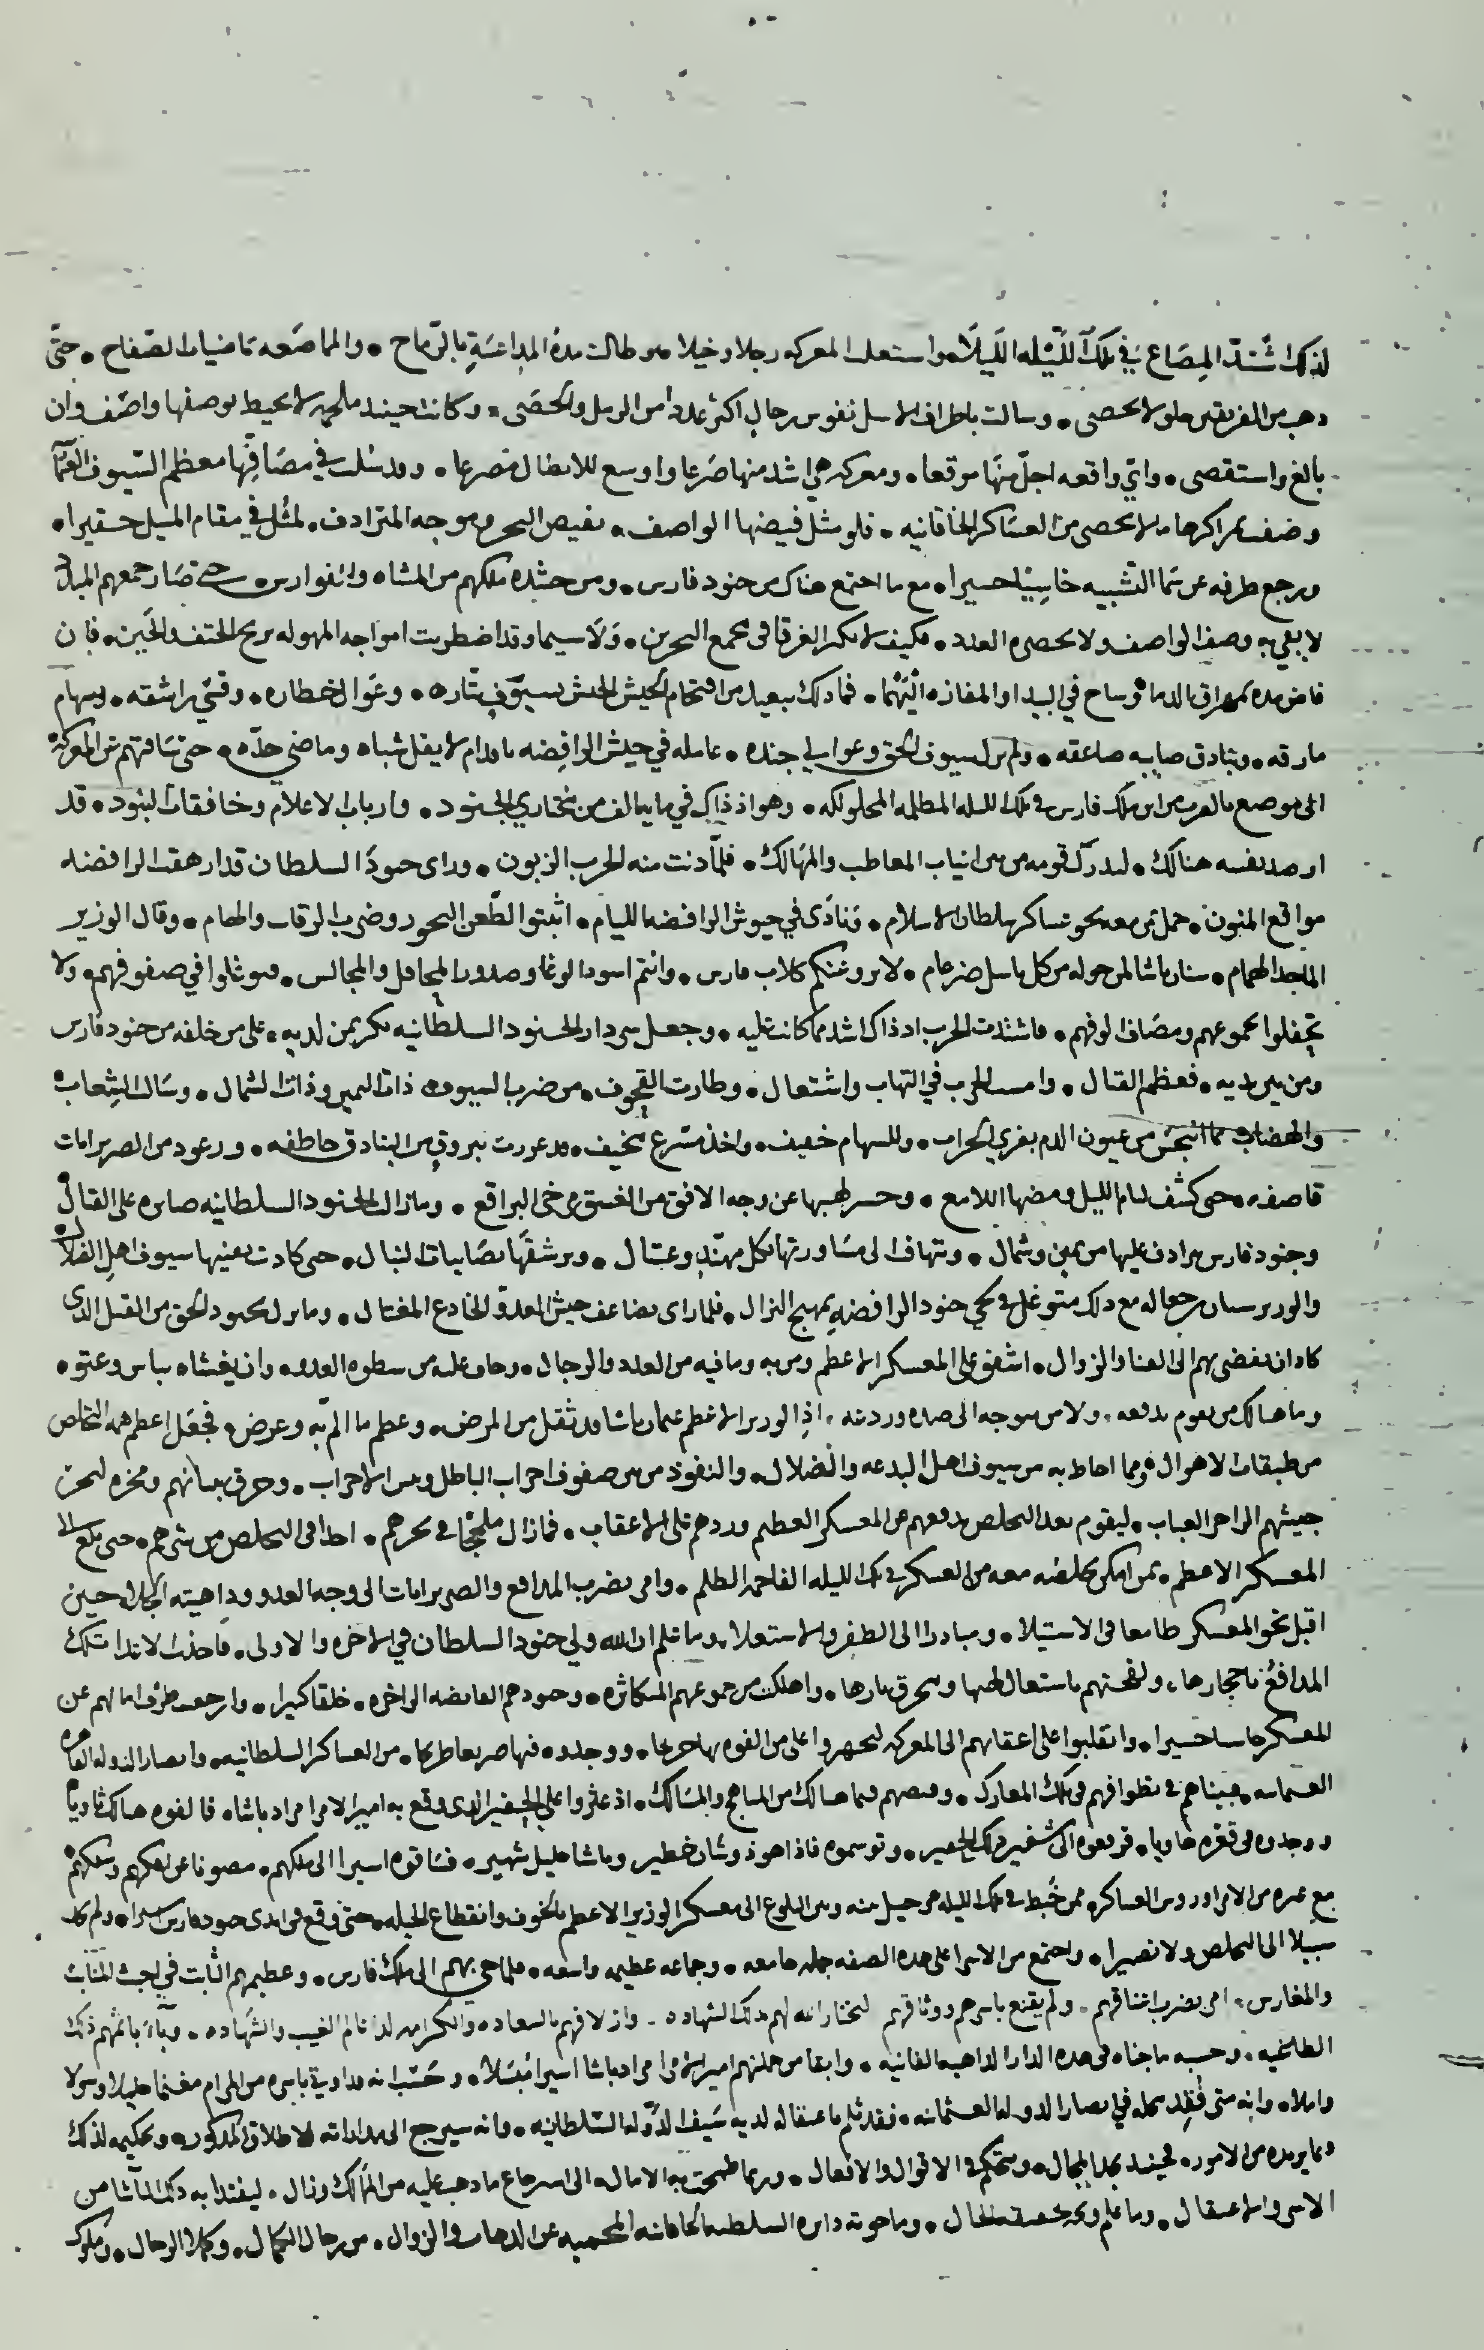 لذلك اشتد المصاع في تلك الليلة الليلا، واستعلت المعركه رجلا وخيلا، وطالت مدة المداعسة بالرماح، والمماصعه بماضيات الصفاح، حتى
ذهب من الفريقين خلق لا يحصى، وسالت باطراف الاسل نفوس رجال اكثر عددا من الرمل والحصى، وكانت حينئذ ملحمة لا يحيط بوصفها واصف وان
بالغ واستقصى، واي واقعه اجل منها موقعا، ومعركه هي اشد منها صرعا واوسع للابطال مصرعا، وقد سلت في مصافها معظم السيوف
بمراكزها ما لا يحصى من العساكر الخاقانيه، فلو مثل فيضها الواصف، بفيض البحر وموجه المترادف، لمثل في مقام حقيرا،
ورجع طرفه عن سما التشبيه خاسيا حسيرا، مع ما اجتمع هناك من جنود فارس، ومن حشده ملكهم من المشاه والفوارس، حتى صار جمعهم
لا يفي به وصف الواصف ولا يحصره العدد، فكيف لا تكثر الغرقا في مجمع البحرين، ولا سيما وقد اضطربت امواجه المهوله بريح الحتف والحين، فان
فاض بالدما وساح في البيدا والمفازه فما ذلك ببعيد من اقتحام الجيش الجيش بسيوف بتاره، وعوال خطاره، وقسي راشقه، وسهام
مارقه، وبنادق صايبه صاعقه، ولم تزل سيوف الحق وعوالي جنده، عامله في جيش الرافضه باقدام لا يفل شباه وماضي حده، حتى المعركه
الى موضع بالقرب من ابن ملك فارس في تلك الليله المظلمه المحلولكه، وهو اذ ذاك في ما يتالف من مختاري الجنود، وارباب الاعلام وخافقات البنود، قد
ارصد نفسه هنالك، ليدرك قومه من بين انياب المعاطب والمهالك، فلما دنت منه الحرب الزبون، وراى جنود السلطان قد ارهقت الرافضه
مواقع المنون، حمل بمن معه نحو عساكر سلطان الاسلام، ونادى في جيوش الرافضه الليام، اثبتوا لطعن النحور وضرب الرقاب والهام، وقال الوزير
الماجد الهمام، سنان باشا لمن حوله من كل باسل ضرغام، لا يروعنكم كلاب فارس، وانتم اسود الوغا وصدور المحافل والمجالس، فتوغلوا في صفوفهم، ولا
تحفلوا بجموعهم ومصاف الوفهم، فاشتدت الحرب اذ ذاك اشد مما كانت عليه، وجعل سردار الجنود السلطانيه يكر بمن لديه، على من خلفه من جنود فارس
ومن بين يديه، فعظم القتال، وامست الحرب في التهاب واشتعال، وطارت القحوف، من ضرب السيوف ذات اليمين وذات الشمال، وسالت الشعاب
والهضاب مما انبجس من عيون الدم بغربي الحراب، وللسهام خفيف، واخذ مسرع مخيف، بروق من البنادق خاطفه، ورعود من الضربزانات
قاصفه، حتى كشف لثام الليل ومضها اللامع، وحسر لهيبها عن وجه الافق من الغسق البراقع، وما زالت الجنود السلطانيه صابره على القتال
وجنود فارس تترادف عليها من يمين وشمال، وتتهافت الى مساورتها بكل مهند وعسال، وترشقها بصايبات النبال، حتى كادت تفنيها سيوف اهل الضلال
والوزير سنان مع ذلك متوغل في جنود الرافضه بمهيج النزال، فلما راى تضاعف جيش العدو الخادع المغتال، وما نزل بجنود الحق من القتل الذي
كاد ان يفضي بهم الى الفنا والزوال، اشفق على المعسكر الاعظم ومن به وما فيه من العدد والرجال، وخاف عليه من سطوه العدو، وان يغشاه بباس وعتو،
وما هنالك من يقوم بدفعه، ولا من يتوجه الى صده وردعه، اذ الوزير الاعظم عثمان باشا قد ثقل من المرض، وعظم ما الم به وعرض، فجعل اعظم همه التخلص
من طبقات الاهوال ومما احاط به من سيوف اهل البدعه والضلال، والنفوذ من بين صفوف احزاب الباطل وبيس الاحزاب، وخرق
جيشهم الزاخر العباب، ليقوم بعد التخلص بدفعهم عن المعسكر العظيم وردهم على الاعقاب، فما زال ملججا في بحرهم، اخذا في التخلص من شرهم، حتى بلغ الى
المعسكر الاعظم، بمن امكن تخليصه معه من العسكر في تلك الليله الفاحمه الظلم، وامر بضرب المدافع والضربزانات الى وجه العدو وداهيته حين
اقبل نحو المعسكر طامعا في الاستيلا، ومبادرا الى الظفر والاستعلا، وما علم ان الله ولي جنود السلطان في الاخره والاولى، فاخذت تلك
المدافع باحجارها، ولفحتهم باشتعال لهبها ومحرق نارها، واهلكت من جموعهم المتكاثره، وجنودهم الفايضه الزاخره، خلقا كثيرا، وارجعت طرف امالهم عن
المعسكر خاسيا حسيرا، وانقلبوا على اعقابهم الى المعركه ليجهزوا على من الفوه بها جريحا، ووجدوه فيها صريعا طريحا، من العساكر السلطانيه، وانصار الدوله
العثمانيه، فبيناهم في تطوافهم في تلك المعارك، وفحصهم فيما هنالك من المناهج والمسالك، اذ عثروا على الحفير الذي وقع به امير الامرا مراد باشا، فالفوه هنالك ثاويا
ووجدوه في قعره هاويا، فرفعوه الى شفير ذلك الحفير، وتوسموه فاذا هو ذو شان خطير وباشا جليل شهير، فساقوه اسيرا الى ملكهم، مصونا عن
مع غيره من الامرا وروس العساكر، ممن خبط في تلك الليله حيل بينه وبين البلوغ الى معسكر الوزير الاعظم بالخوف وانقطاع الحيله، حتى وقع في ايدي جنود فارس اسيرا، ولم يجد
سبيلا الى التخلص ولا نصيرا، واجتمع من الاسرا على هذه الصفه جمله جامعه، وجماعه عظيمه واسعه، فلما جي بهم الى ملك فارس، وعظيمهم الثابت في اخبث المنابت
والمغارس، امر بضرب اعناقهم، ولم يقنع باسرهم ووثاقهم ليختار الله لهم بذلك الشهاده، وازلافهم بالسعاده والكرامه لدا عالم الغيب والشهاده، وباء باثمهم ذلك
الطاغيه، وحسبه ما جناه في هذه الدار الذاهبه الفانيه، وابقا من جملتهم امير الامرا مراد باشا اسيرا مبسلا، وحسب انه باسره من المرام مغنما جليلا
واملا، وانه متى فقد مثله في انصار الدوله العثمانيه، فقد ثلم باعتقاله لديه سيف الدوله السلطانيه، وانه سيرجع الى مداراته لاطلاق المذكور، وتحكيمه لذلك
فيما يريده من الامور، فحينئذ يجد المجال، ويتحكم في الاقوال والافعال، وربما طمحت به الامال، الى استرجاع ما ذهب عليه من الممالك وزال، ليفتدا به ذلك الباشا من
الاسر والاعتقال، وما علم وتحقيقه الحال، وما حوته دايره السلطنه الخاقانيه المحميه عن الذهاب والزوال، من رجال الكمال، وكملا الرجال، وملوك